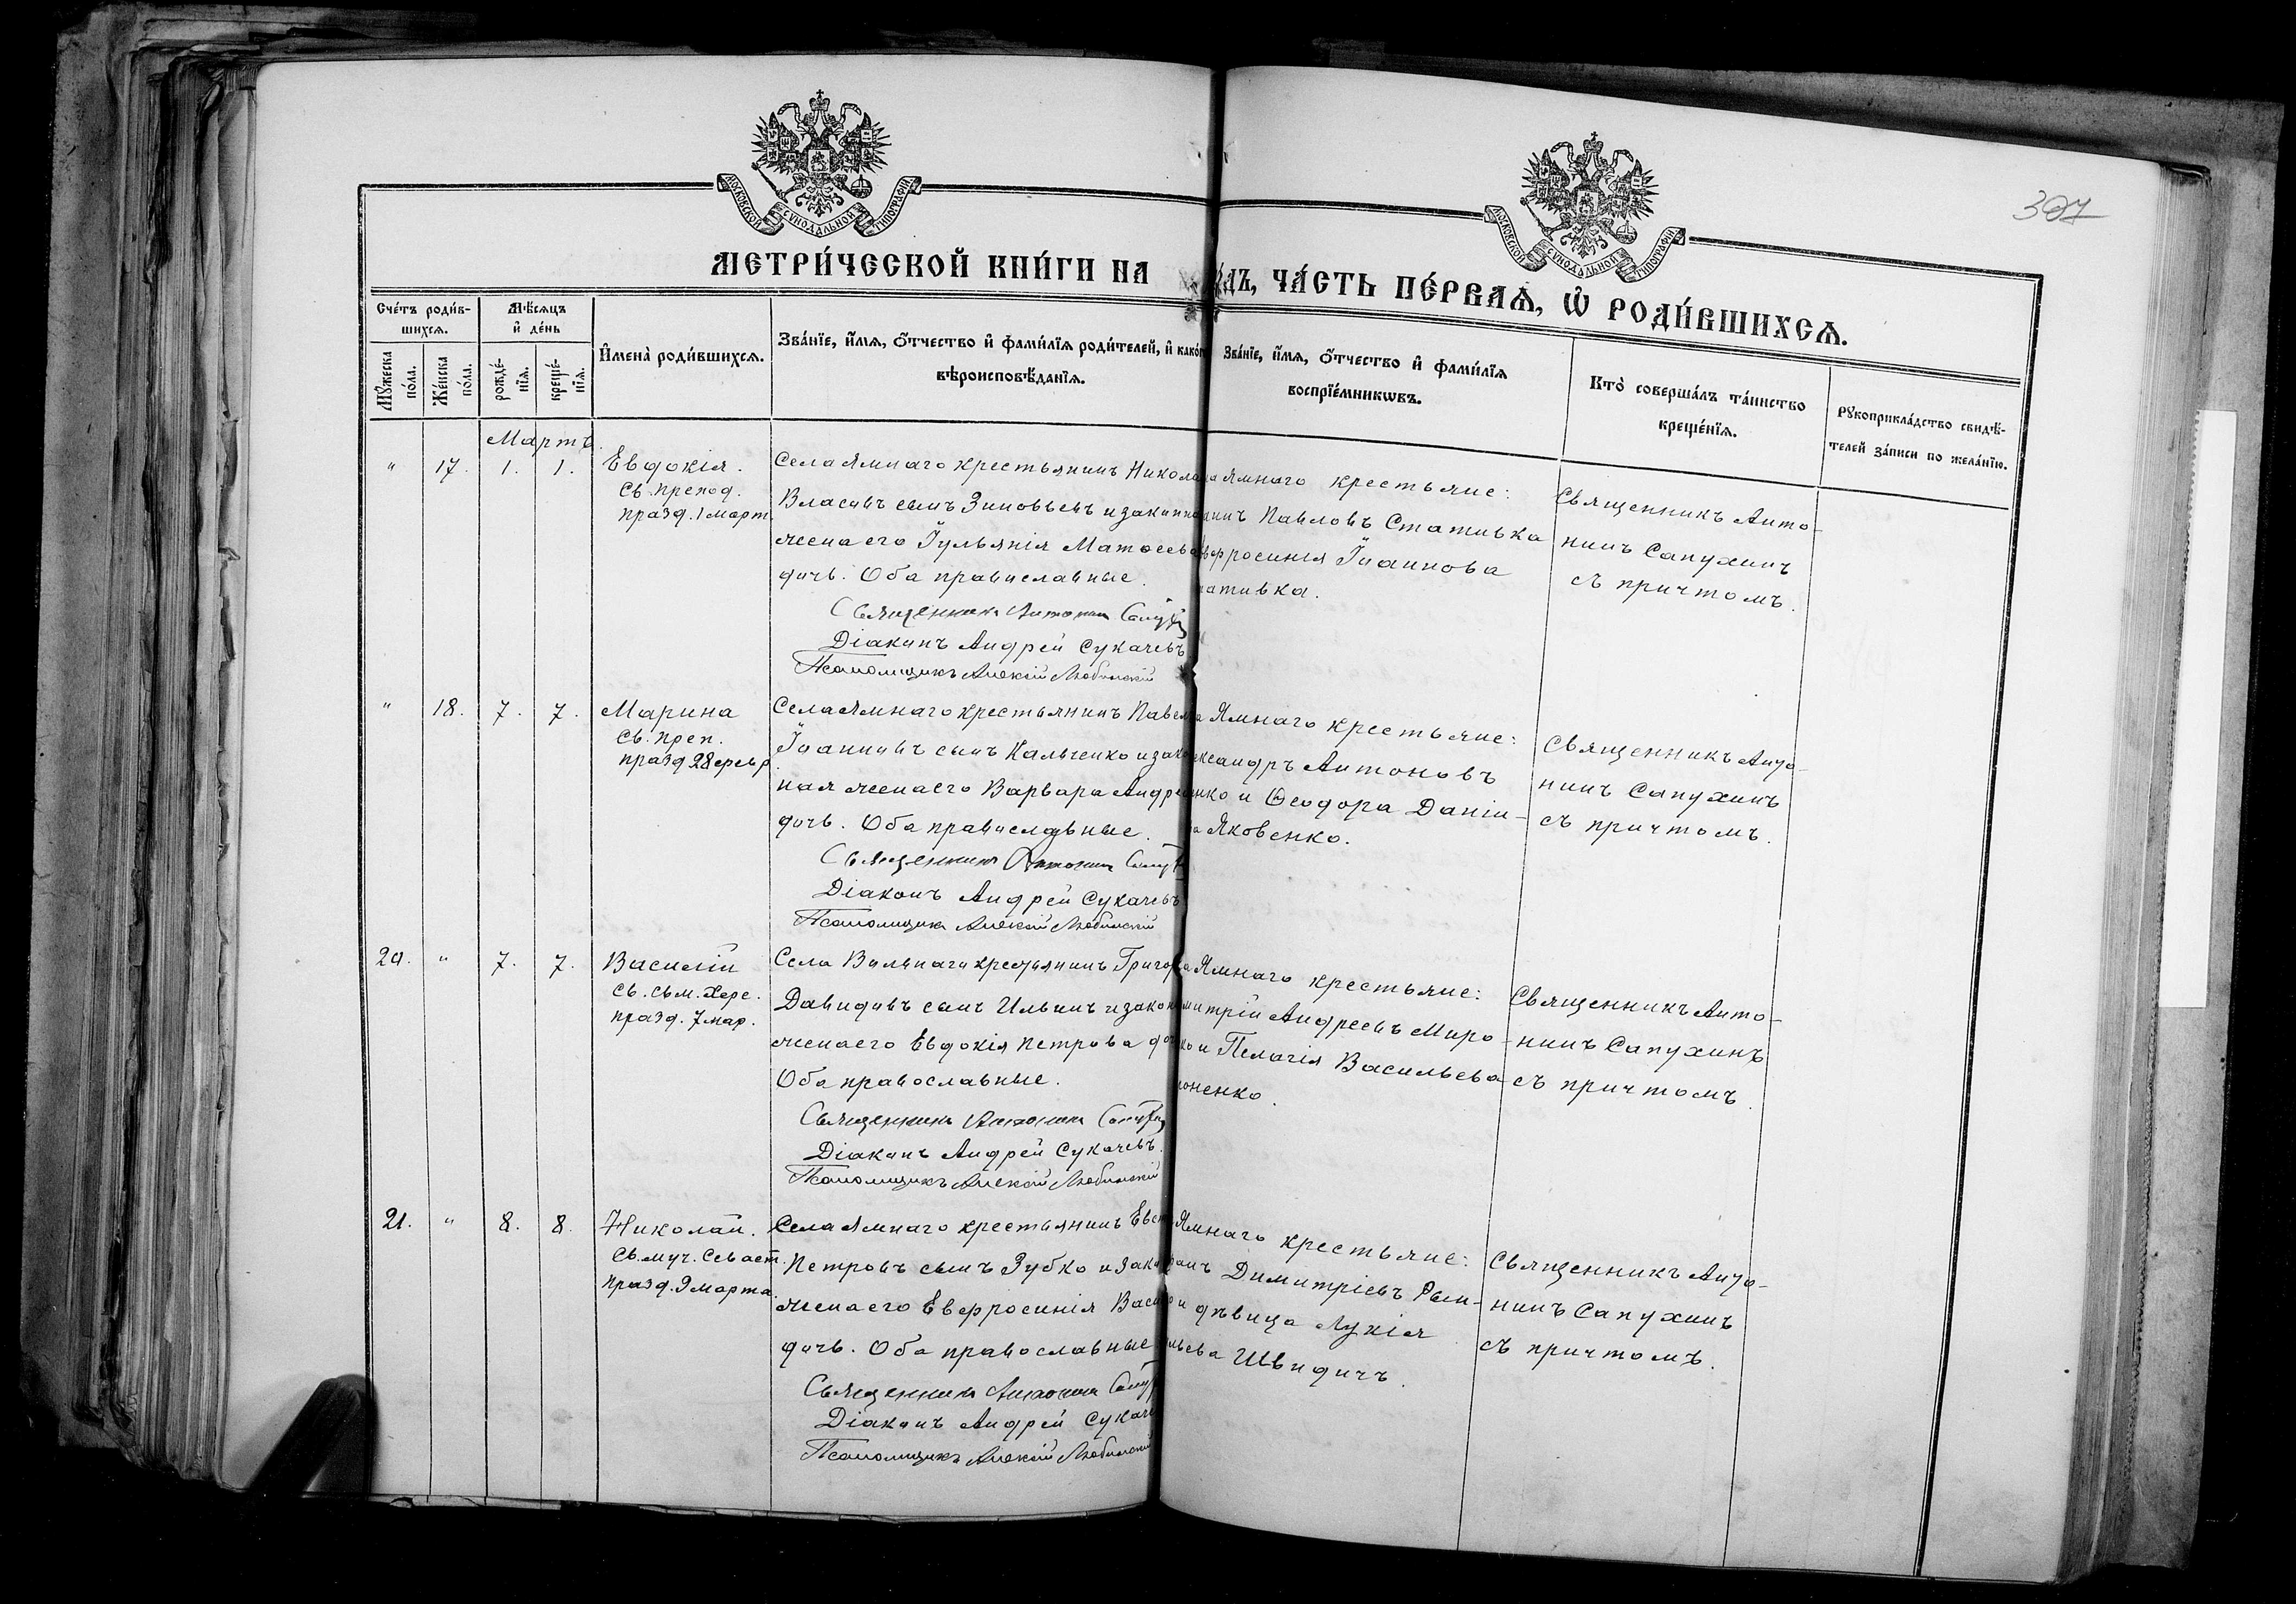 МОСКОВСКОЙ СУНОДАЛЬНОЙ ТИПОГРАФІИ
МОСКОВСКОЙ СУНОДАЛЬНОЙ ТИПОГРАФІИ
307
МЕТРИ́ЧЕСКОЙ КНИ́ГИ НА
ДЪ, ЧА́СТЬ ПЕ́РВАѦ, Ѡ РОДИ́ВШИХСѦ.
Сче́тъ роди́в-
шихсѧ.
Мѣ́сѧцъ
и҆ де́нь
Мꙋ́жеска
по́ла.
Же́нска
по́ла.
рожде́-
нїѧ.
креще́-
нїѧ.
И҆мена̀ роди́вшихсѧ.
Зва́нїе, и҆́мѧ, ѻ҆́тчество и҆ фами́лїѧ роди́телей, и҆ како́г
вѣроисповѣ́данїѧ.
Зва́нїе, и҆́мѧ, ѻ҆́тчество и҆ фами́лїѧ
воспрїе́мникѡвъ.
Кто̀ соверша́лъ та́инство
креще́нїѧ.
Рꙋкоприкла́дство свидѣ́-
телей за́писи по жела́нїю.
Мартъ.
" 17. 1. 1. Евдокія.
Св. препод.
празд. 1 март.
Села Ямнаго крестьянинъ Никола
Власовъ сынъ Зиновьевъ и законна
жена его Іульянія Матѳеева
дочь. Оба православные.
Священникъ Антонин Сапух
Діаконъ Андрей Сукачевъ
Псаломщикъ Алексій Любинскій
а Ямнаго крестьяне:
Павловъ Стативка
фросинія Іоаннова
ативка.
Священникъ Анто-
нинъ Сапухинъ
съ причтомъ.
" 18. 7. 7. Марина
Св. преп.
празд 28 февр.
Села Ямнаго крестьянинъ Павел
Іоанновъ сынъ Кальченко и зако
ная жена его Варвара Андре
дочь. Оба православные.
Священникъ Антонин Сапух
Діаконъ Андрей Сукачевъ
Псаломщикъ Алексій Любинскій
а Ямнаго крестьяне:
ександръ Антоновъ
енко и Ѳеодора Даніи-
а Яковенко.
Священникъ Анто-
нинъ Сапухинъ
съ причтомъ.
20. " 7. 7. Василій
Св. свм. Херс.
празд. 7 мар.
Села Вольнаго крестьянинъ Григор
Давидовъ сынъ Ильинъ и закон
жена его Евдокія Петрова до
Оба православные.
Священникъ Антонин Сапухин
Діаконъ Андрей Сукачевъ.
Псаломщикъ Алексій Любинскій
а Ямнаго крестьяне:
митрій Андреевъ Миро-
ко и Пелагія Васильева
оненко.
Священникъ Анто-
нинъ Сапухинъ
съ причтомъ.
21. " 8. 8. Николай.
Св. муч. Севаст.
празд. 9 марта.
Села Ямнаго крестьянинъ Евст
Петровъ сынъ Зубко и зако
жена его Евфросинія Васи
дочь. Оба православные
Священникъ Антонин Сапу
Діаконъ Андрей Сукаче
Псаломщикъ Алексій Любинскій
Ямнаго крестьяне:
Димитріевъ Рыи-
о и дѣвица Лукія
льева Швидичъ.
Священникъ Анто-
нинъ Сапухинъ
съ причтомъ.